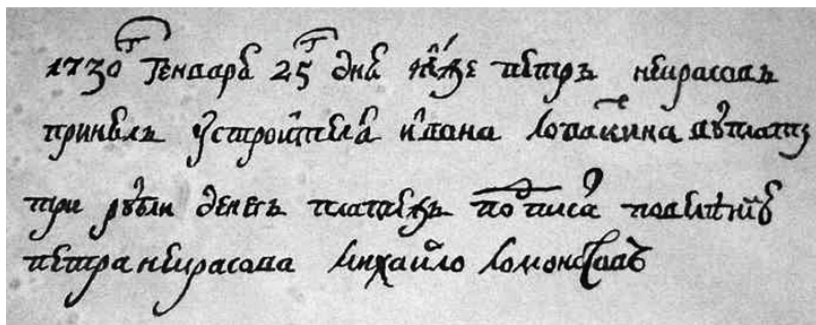 1730 Генваря 25 дня петръ некрасовъ
принялъ устроителя ивана лопаткина вуплату
три рубли денегъ платежъ подписа повелѣнию
петра некрасова михайло ломоносовъ